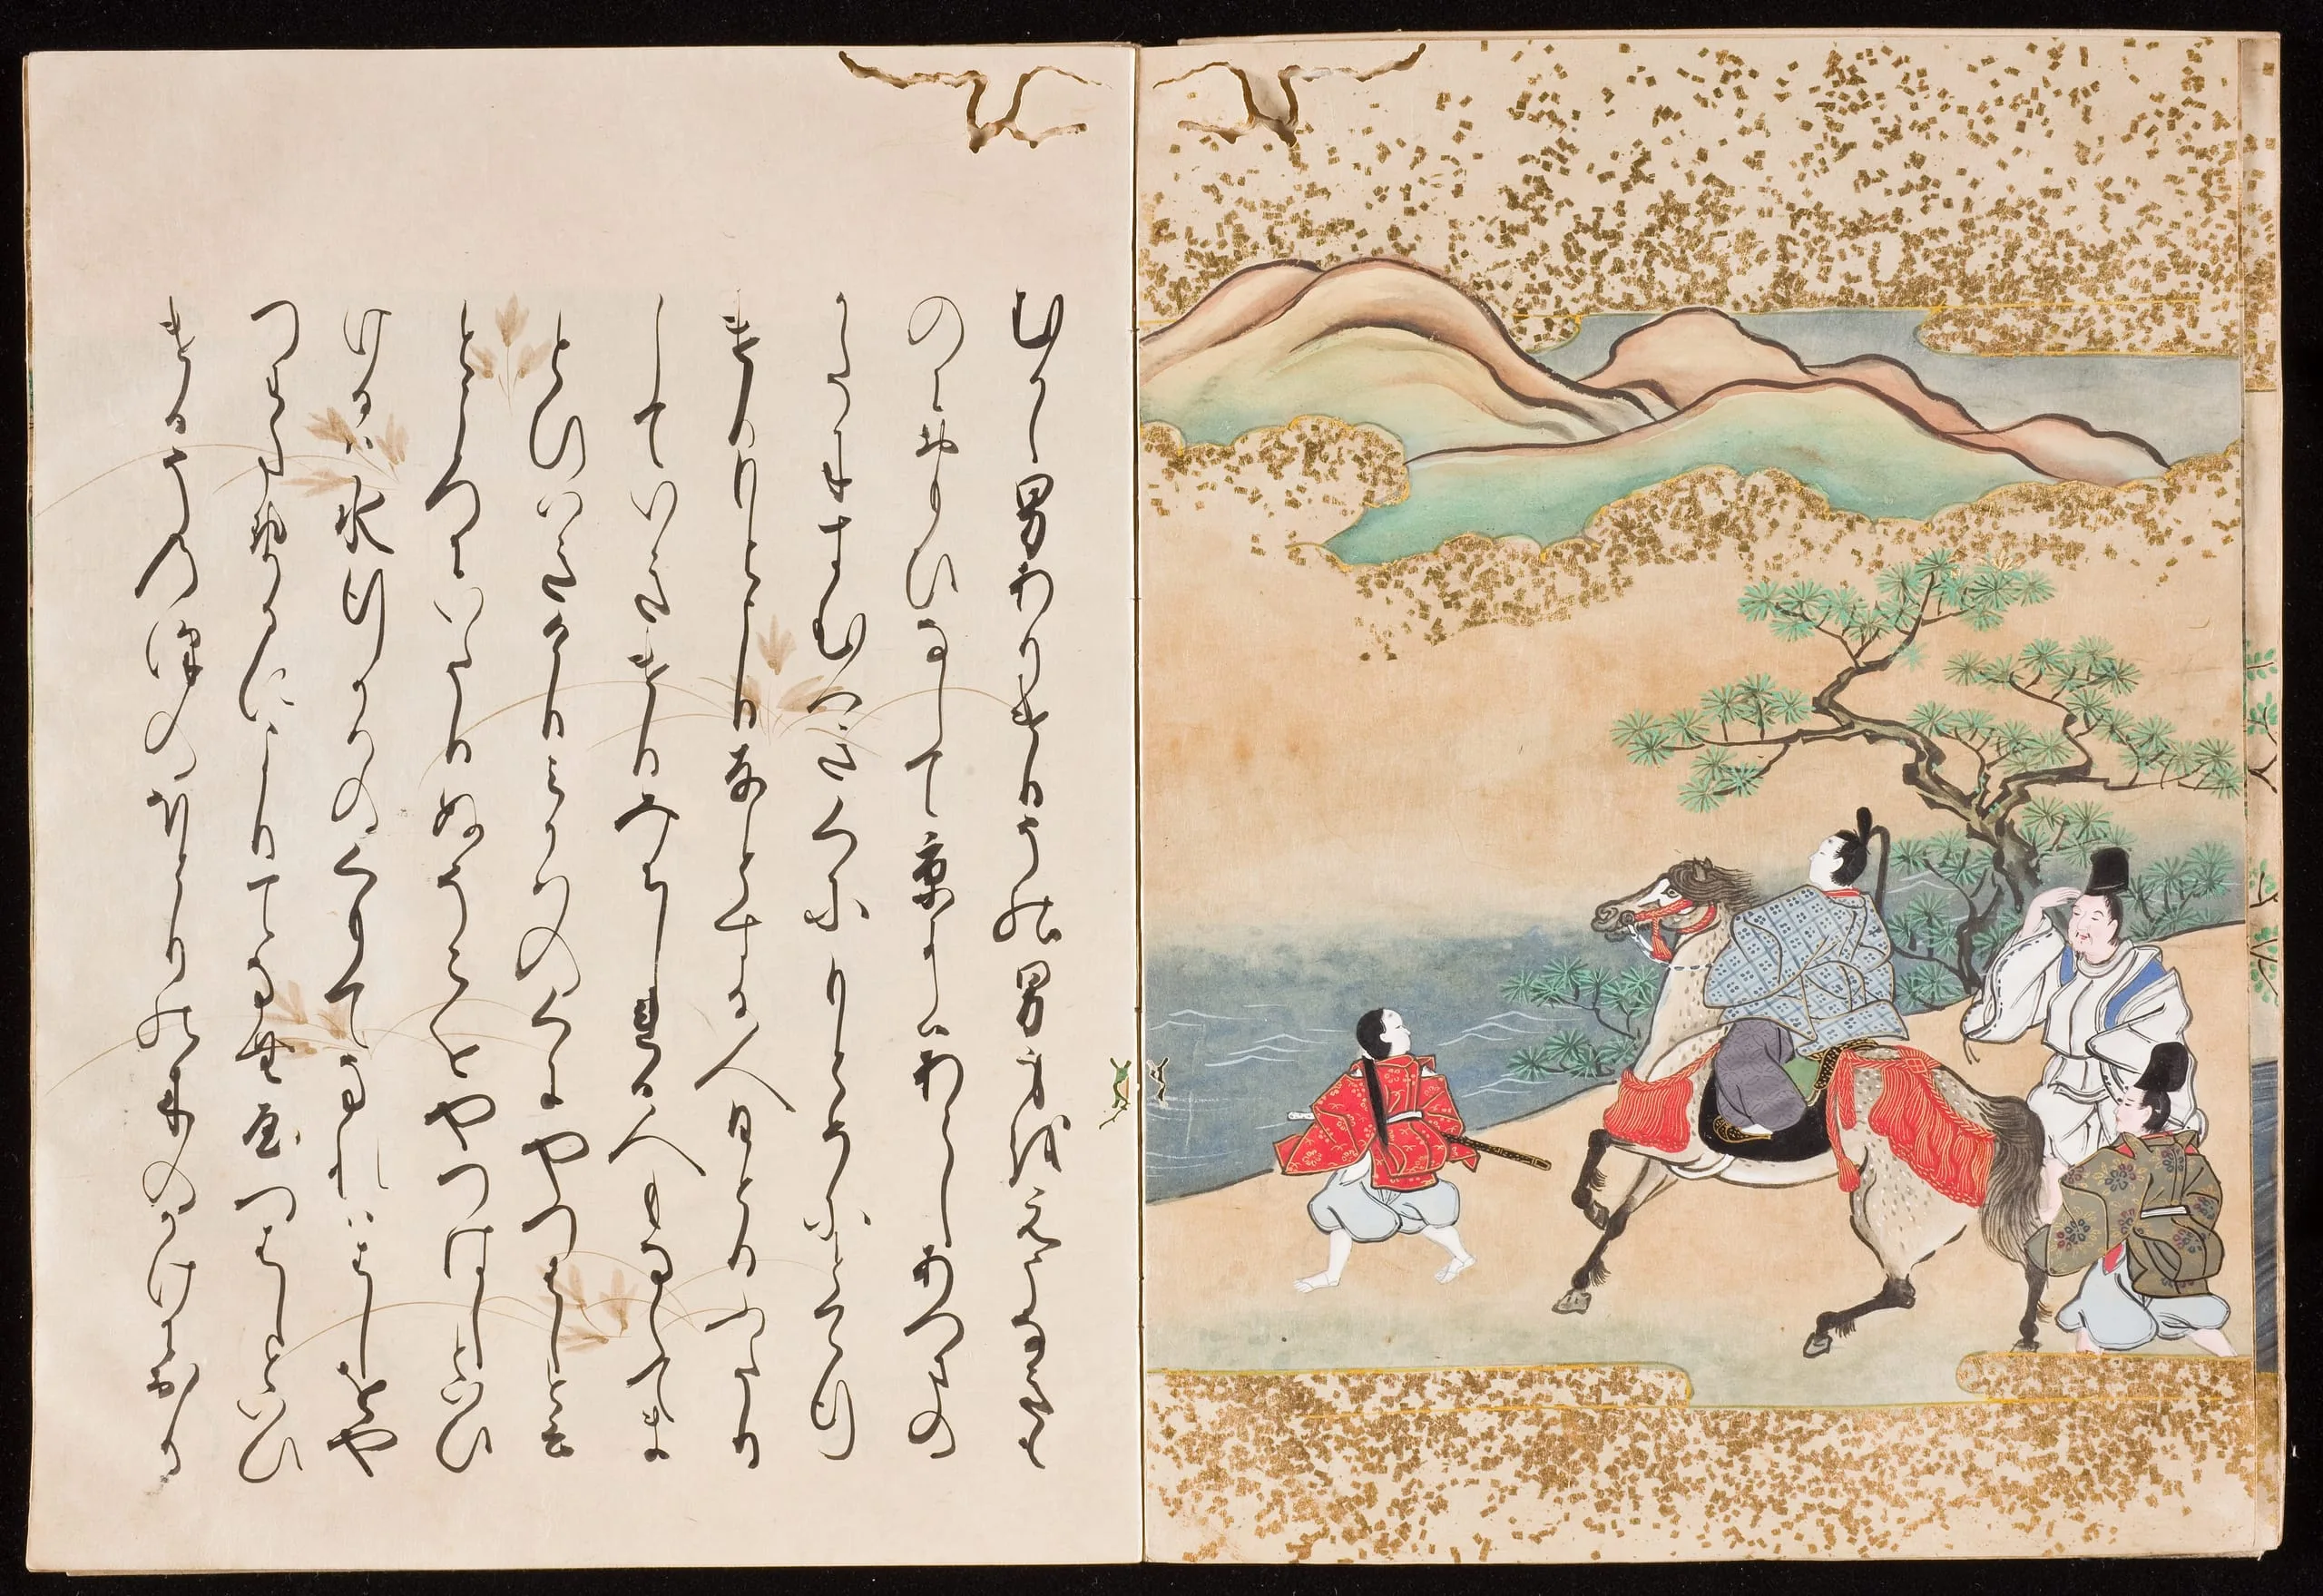 むかし男ありけりその男身をえうなきも
のに思ひなして京にはあらしあつまの
かたにすむへきくにもとめにとてゆ
きけりもとよりともとする人ひとりふたり
していきけりみちしれる人もなくてま
とひいきけりみかはのくにやつはし
といふ所にいたりぬそこをやつはしとい
ひけるは水ゆく河のくもてなれははしをや
つわたせるによりてなむやつはしとい
ひけるそのさはのほとりの木のかけに